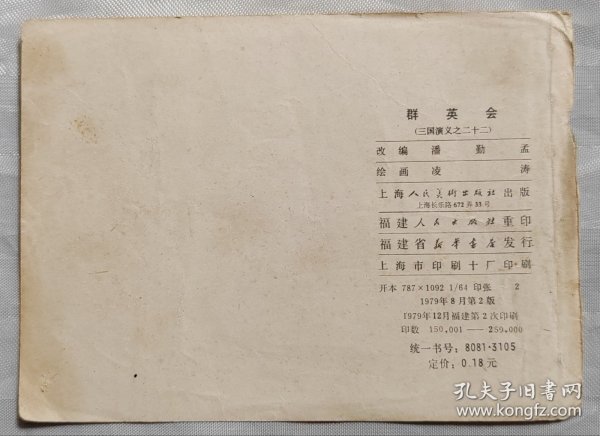 群英会
(三国演义之二十二)
改编 潘勤孟
绘画 凌涛
上海人民美術出版社 出版
上海长乐路672弄33号
福建人民出版社 重印
福建省新华书店 发行
上海市印刷十厂 印刷
开本 787×1092 1/64 印张 2
1979年8月第2版
1979年12月福建第2次印刷
印数 150,001—259,000
统一书号：8081·3105
定价：0.18元
孔夫子旧书网
www.kongfz.com